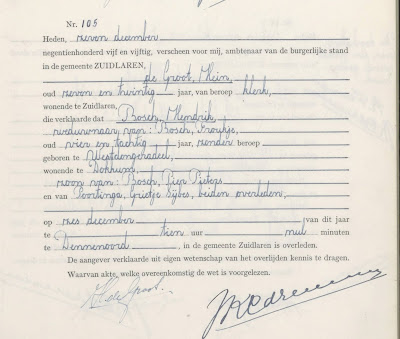 Nr. 105
Heden, zeven december
negentienhonderd vijf en vijftig, verscheen voor mij, ambtenaar van de burgerlijke stand
in de gemeente ZUIDLAREN,
de Groot, Hein,
oud zeven en twintig jaar, van beroep klerk,
wonende te Zuidlaren,
die verklaarde dat Bosch, Hendrik,
weduwnaar van: Bosch, Froukje,
oud vier en tachtig jaar, zonder beroep
geboren te Westdongeradeel,
wonende te Dokkum,
zoon van: Bosch, Pier Pieters
en van Poortinga, Grietje Sybes, beiden overleden,
op zes december van dit jaar
te tien uur nul minuten
te Dennenoord, in de gemeente Zuidlaren is overleden.
De aangever verklaarde uit eigen wetenschap van het overlijden kennis te dragen.
Waarvan akte, welke overeenkomstig de wet is voorgelezen.
H. de Groot.